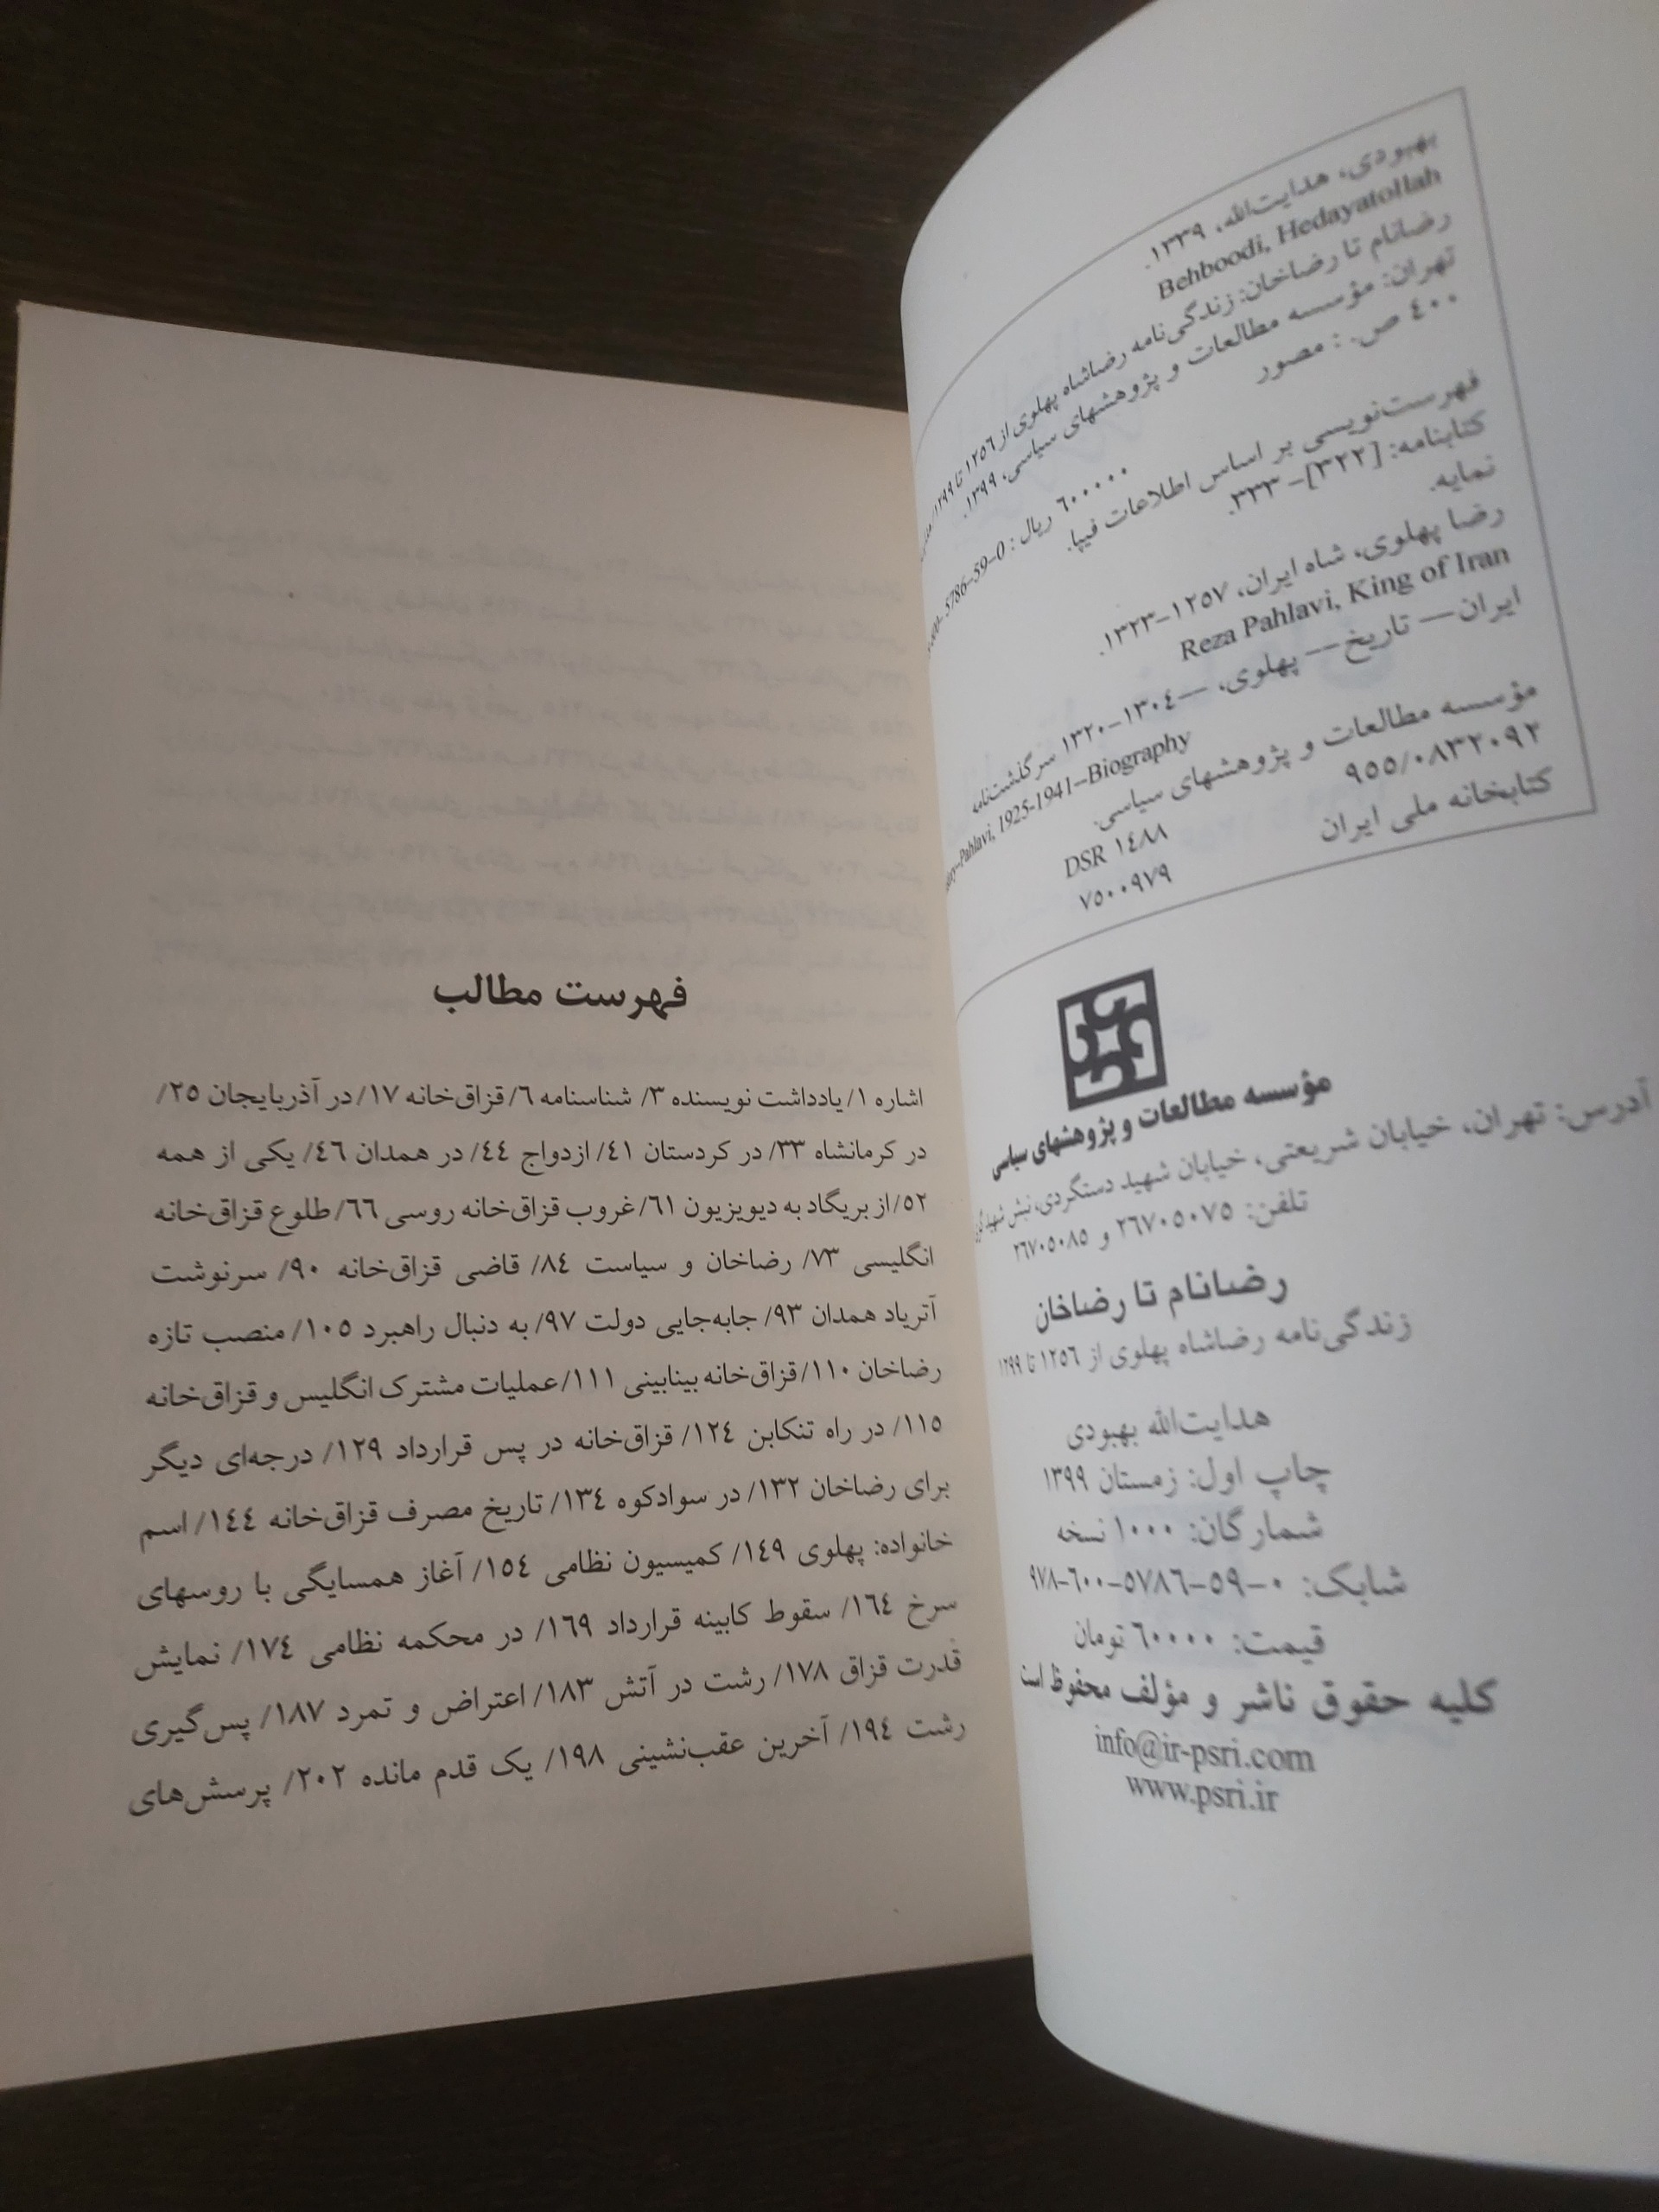 بهبودی، هدایت‌الله، ۱۳۳۹.
Behboodi, Hedayatollah
رضانام تا رضاخان: زندگی‌نامه رضاشاه پهلوی از ۱۲۵۶ تا ۱۲۹۹/
تهران: مؤسسه مطالعات و پژوهشهای سیاسی، ۱۳۹۹.
۴۰۰ ص. : مصور
۶۰۰۰۰۰ ریال : 5786-59-0
فهرست‌نویسی بر اساس اطلاعات فیپا.
کتابنامه: [۳۲۲]-۳۳۳.
نمایه.
رضا پهلوی، شاه ایران، ۱۲۵۷-۱۳۲۳.
Reza Pahlavi, King of Iran
ایران — تاریخ — پهلوی، — ۱۳۰۴-۱۳۲۰ سرگذشت‌نامه
Pahlavi, 1925-1941–Biography
مؤسسه مطالعات و پژوهشهای سیاسی.
DSR ۱۴۸۸
۹۵۵/۰۸۳۲۰۹۲
۷۵۰۰۹۷۹
کتابخانه ملی ایران
مؤسسه مطالعات و پژوهشهای سیاسی
آدرس: تهران، خیابان شریعتی، خیابان شهید دستگردی، نبش شهید
تلفن: ۲۶۷۰۵۰۷۵ و ۲۶۷۰۵۰۸۵
رضانام تا رضاخان
زندگی‌نامه رضاشاه پهلوی از ۱۲۵۶ تا ۱۲۹۹
هدایت‌الله بهبودی
چاپ اول: زمستان ۱۳۹۹
شمارگان: ۱۰۰۰ نسخه
شابک: ۰-۵۹-۵۷۸۶-۶۰۰-۹۷۸
قیمت: ۶۰۰۰۰ تومان
کلیه حقوق ناشر و مؤلف محفوظ است
info@ir-psri.com
www.psri.ir
فهرست مطالب
اشاره ۱/ یادداشت نویسنده ۳/ شناسنامه ۶/ قزاق‌خانه ۱۷/ در آذربایجان ۲۵/
در کرمانشاه ۳۳/ در کردستان ۴۱/ ازدواج ۴۴/ در همدان ۴۶/ یکی از همه
۵۲/ از بریگاد به دیویزیون ۶۱/ غروب قزاق‌خانه روسی ۶۶/ طلوع قزاق‌خانه
انگلیسی ۷۳/ رضاخان و سیاست ۸۴/ قاضی قزاق‌خانه ۹۰/ سرنوشت
آتریاد همدان ۹۳/ جابه‌جایی دولت ۹۷/ به دنبال راهبرد ۱۰۵/ منصب تازه
رضاخان ۱۱۰/ قزاق‌خانه بینابینی ۱۱۱/ عملیات مشترک انگلیس و قزاق‌خانه
۱۱۵/ در راه تنکابن ۱۲۴/ قزاق‌خانه در پس قرارداد ۱۲۹/ درجه‌ای دیگر
برای رضاخان ۱۳۲/ در سوادکوه ۱۳۴/ تاریخ مصرف قزاق‌خانه ۱۴۴/ اسم
خانواده: پهلوی ۱۴۹/ کمیسیون نظامی ۱۵۴/ آغاز همسایگی با روسهای
سرخ ۱۶۴/ سقوط کابینه قرارداد ۱۶۹/ در محکمه نظامی ۱۷۴/ نمایش
قدرت قزاق ۱۷۸/ رشت در آتش ۱۸۳/ اعتراض و تمرد ۱۸۷/ پس‌گیری
رشت ۱۹۴/ آخرین عقب‌نشینی ۱۹۸/ یک قدم مانده ۲۰۲/ پرسش‌های